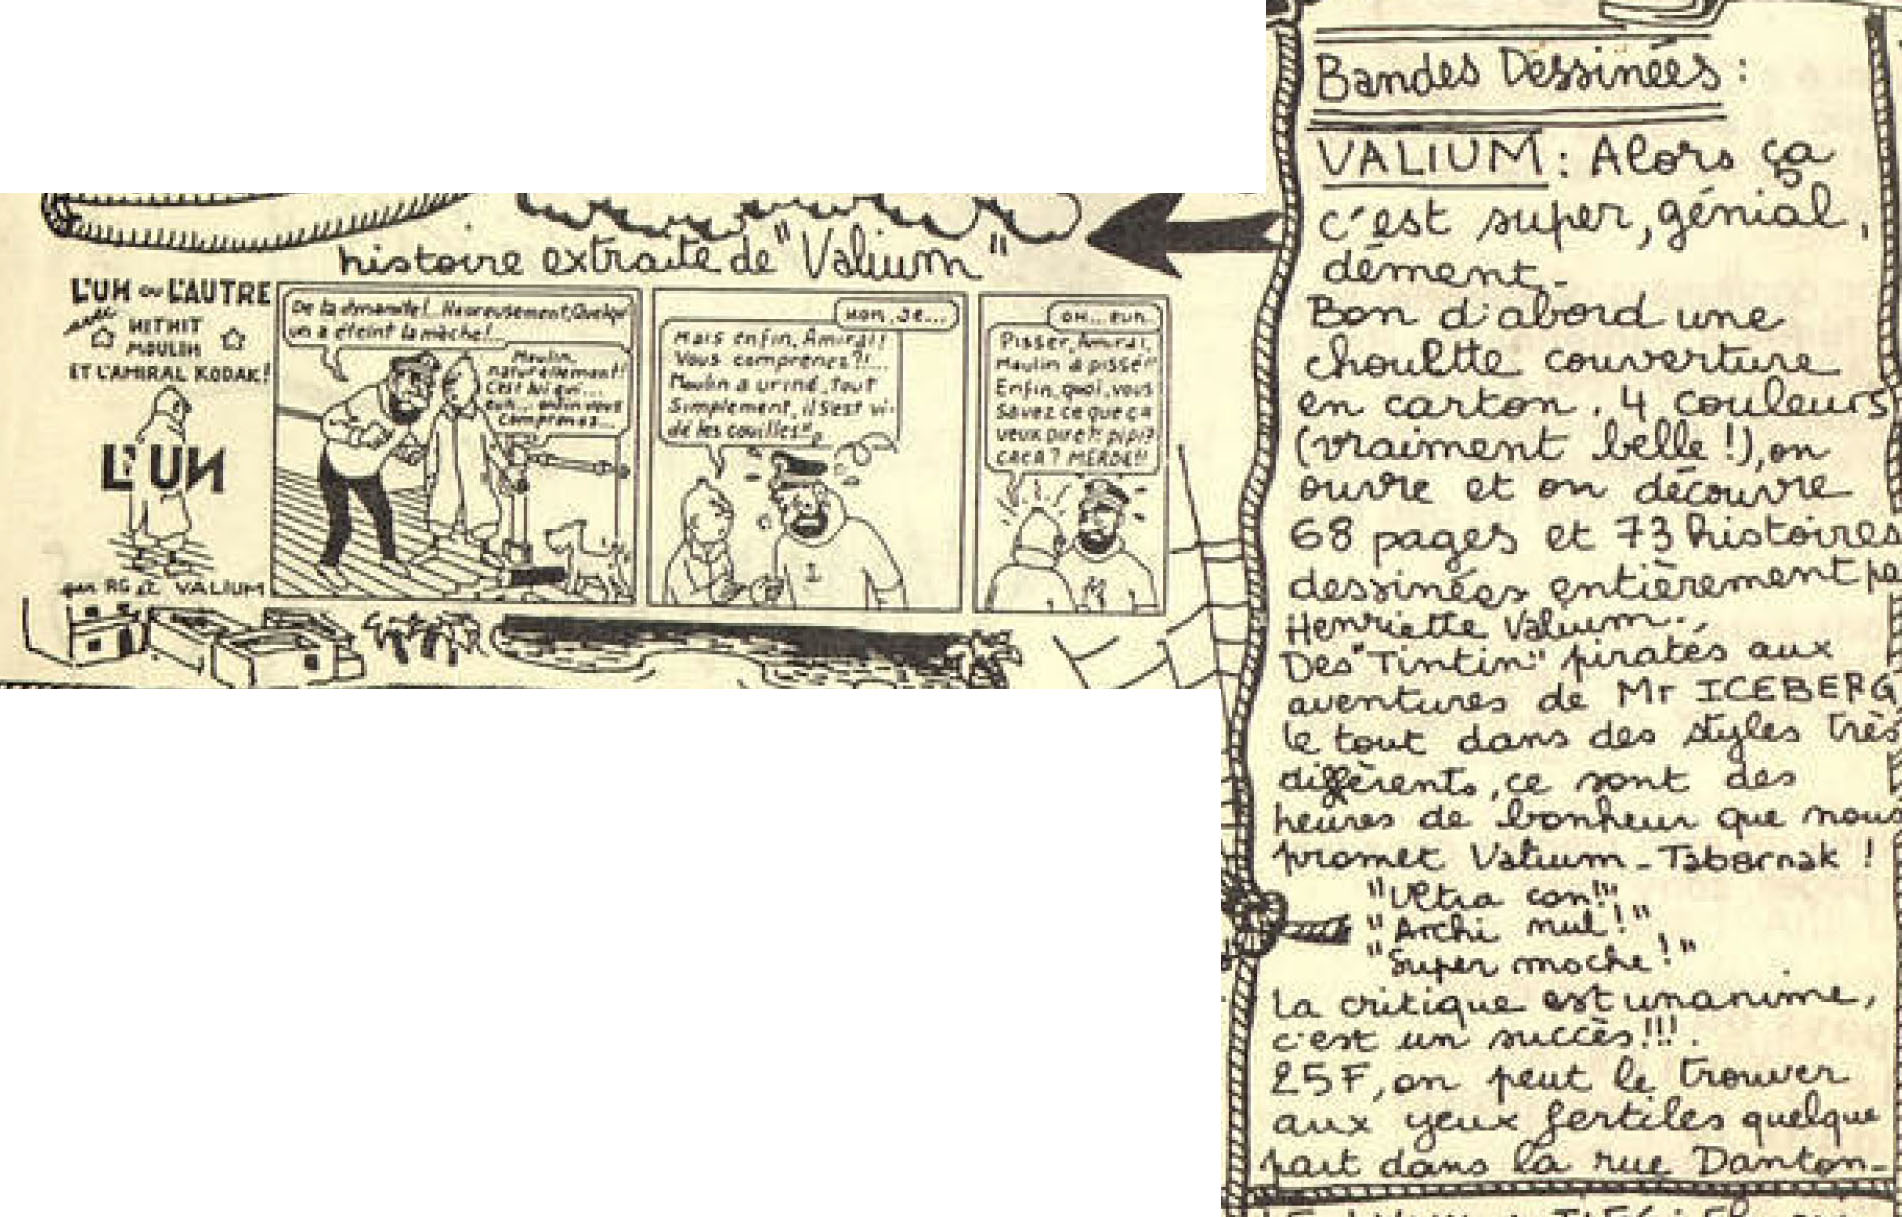 histoire extraite de "Valium"
L'UN ou L'AUTRE
avec HITHIT
MOULIN
ET L'AMIRAL KODAK!
L'UN
par RG et VALIUM
De la dynamite!.. Heureusement, Quelqu'
un a éteint la mèche!..
Moulin,
naturellement!
C'est lui qui...
euh... enfin vous
Comprenez...
Non, Je...
Mais enfin, Amiral!
Vous comprenez?!...
Moulin a uriné, tout
Simplement, il s'est vi-
dé les couilles!!,
OH... EUH..
Pisser, Amiral,
Moulin a pissé!!
Enfin, quoi, vous
savez ce que ça
veux dire?: pipi?
CACA? MERDE!!
Bandes Dessinées :
VALIUM : Alors ça
c'est super, génial,
dément_
Bon d'abord une
chouette couverture
en carton. 4 couleurs
(vraiment belle!), on
ouvre et on découvre
68 pages et 73 histoires
dessinées entièrement pa
Henriette Valium..
Des "Tintin" piratés aux
aventures de Mr ICEBERG,
le tout dans des styles très
différents, ce sont des
heures de bonheur que nous
promet Valium_Tabarnak !
"Ultra con!"
"Archi nul!"
"Super moche!"
La critique est unanime,
c'est un succès!!!.
25F, on peut le trouver
aux yeux fertiles quelque
part dans la rue Danton_